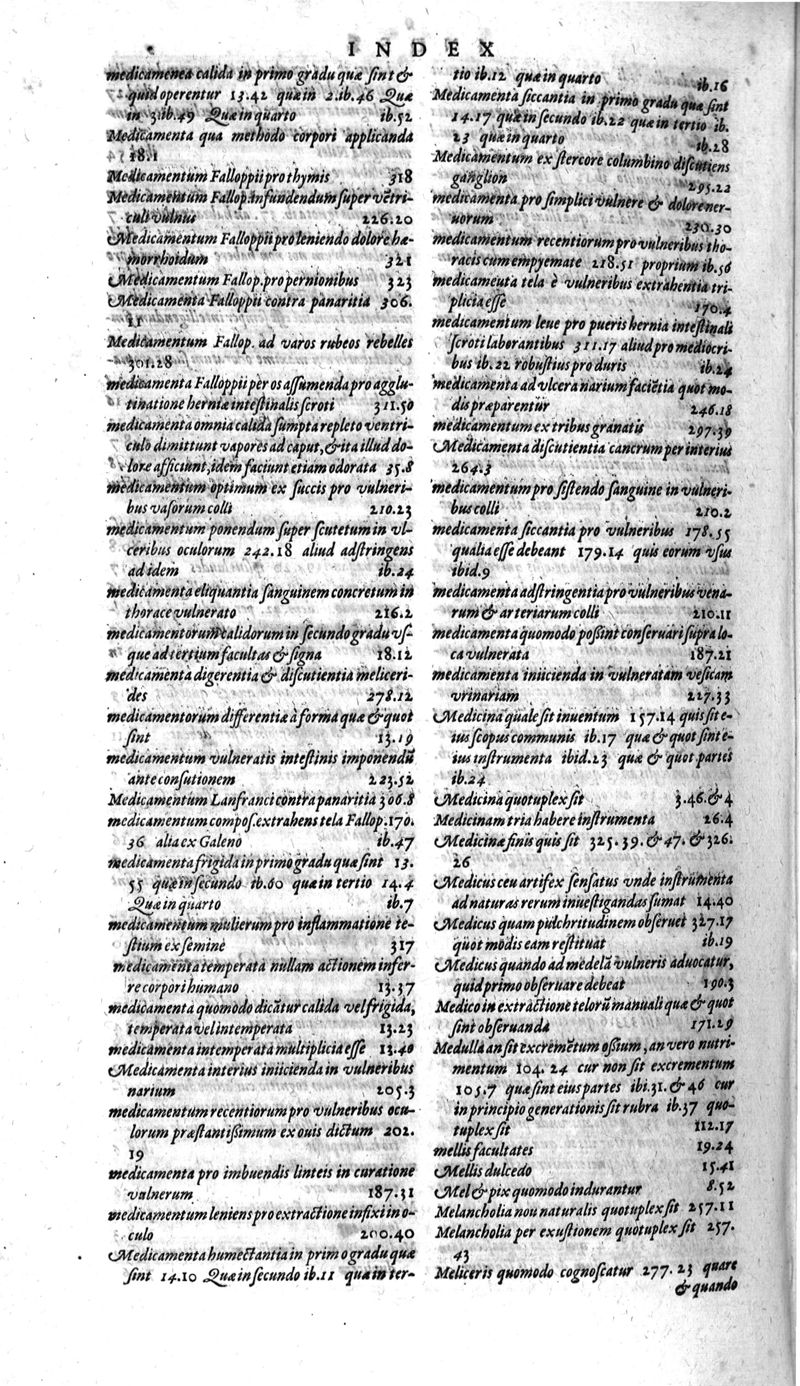 INDEX
medicamenea calida in primo gradu quæ sint &
quid operentur 13.42 quæ in 2.ib.46 Quæ
in 3.ib.49 Quæ in quarto ib.52
Medicamenta qua methodo corpori applicanda
18.1
Medicamentum Falloppii pro thymis 318
Medicamentum Fallop.infundendum super vētri-
culi vulnus 226.20
Medicamentum Falloppii pro leniendo dolore hæ-
morrhoidum 321
Medicamentum Fallop.pro pernionibus 323
Medicamenta Falloppii contra panaritia 306.
11
Medicamentum Fallop. ad varos rubeos rebelles
301.28
medicamenta Falloppii per os assumenda pro agglu-
tinatione herniæ intestinalis scroti 311.50
medicamenta omnia calida sumpta repleto ventri-
culo dimittunt vapores ad caput, & ita illud do-
lore afficiunt, idem faciunt etiam odorata 35.8
medicamentum optimum ex succis pro vulneri-
bus vasorum colli 210.23
medicamentum ponendum super scutetum in vl-
ceribus oculorum 242.18 aliud adstringens
ad idem ib.24
medicamenta eliquantia sanguinem concretum in
thorace vulnerato 216.2
medicamentorum calidorum in secundo gradu vs-
que ad tertium facultas & signa 18.12
medicamenta digerentia & discutientia meliceri-
des 278.12
medicamentorum differentiæ à forma quæ & quot
sint 13.19
medicamentum vulneratis intestinis imponendū
ante consutionem 223.52
Medicamentum Lanfranci contra panaritia 306.8
medicamentum compos.extrahens tela Fallop.170.
36 alia ex Galeno ib.47
medicamenta frigida in primo gradu quæ sint 13.
55 quæ in secundo ib.60 quæ in tertio 14.4
Quæ in quarto ib.7
medicamentum mulierum pro inflammatione te-
stium ex semine 317
medicamenta temperata nullam actionem infer-
re corpori humano 13.37
medicamenta quomodo dicātur calida vel frigida,
temperata vel intemperata 13.23
medicamenta intemperata multiplicia esse 13.40
Medicamenta interius iniicienda in vulneribus
narium 205.3
medicamentum recentiorum pro vulneribus ocu-
lorum præstantißimum ex ouis dictum 202.
19
medicamenta pro imbuendis linteis in curatione
vulnerum 187.31
medicamentum leniens pro extractione infixi in o-
culo 200.40
Medicamenta humectantia in primo gradu quæ
sint 14.10 Quæ in secundo ib.11 quæ in ter-
tio ib.12 quæ in quarto ib.16
Medicamenta siccantia in primo gradu quæ sint
14.17 quæ in secundo ib.22 quæ in tertio ib.
23 quæ in quarto ib.28
Medicamentum ex stercore columbino discutiens
ganglion 295.22
medicamenta pro simplici vulnere & dolore ner-
uorum 230.30
medicamentum recentiorum pro vulneribus tho-
racis cum empyemate 218.51 proprium ib.56
medicameuta tela è vulneribus extrahentia tri-
plicia esse 170.4
medicamentum leue pro pueris hernia intestinali
scroti laborantibus 311.17 aliud pro mediocri-
bus ib.22 robustius pro duris ib.24
medicamenta ad vlcera narium faciētia quot mo-
dis præparentur 246.18
medicamentum ex tribus granatis 297.39
Medicamenta discutientia cancrum per interius
264.3
medicamentum pro sistendo sanguine in vulneri-
bus colli 210.2
medicamenta siccantia pro vulneribus 178.55
qualia esse debeant 179.14 quis eorum vsus
ibid.9
medicamenta adstringentia pro vulneribus vena-
rum & arteriarum colli 210.11
medicamenta quomodo poßint conseruari supra lo-
ca vulnerata 187.21
medicamenta iniicienda in vulneratam vesicam
vrinariam 227.33
Medicina quale sit inuentum 157.14 quis sit e-
ius scopus communis ib.17 quæ & quot sint e-
ius instrumenta ibid.23 quæ & quot partes
ib.24
Medicina quotuplex sit 3.46.& 4
Medicinam tria habere instrumenta 26.4
Medicinæ finis quis sit 325.39. & 47. & 326.
26
Medicus ceu artifex sensatus vnde instrumenta
ad naturas rerum inuestigandas sumat 14.40
Medicus quam pulchritudinem obseruet 327.17
quot modis eam restituat ib.19
Medicus quando ad medelā vulneris aduocatur,
quid primo obseruare debeat 190.3
Medico in extractione telorū manuali quæ & quot
sint obseruanda 171.29
Medulla an sit excremētum ossium, an vero nutri-
mentum 104.24 cur non sit excrementum
105.7 quæ sint eius partes ibi.31.& 46 cur
in principio generationis sit rubra ib.37 quo-
tuplex sit 112.17
mellis facultates 19.24
Mellis dulcedo 15.41
Mel & pix quomodo indurantur 8.52
Melancholia non naturalis quotuplex sit 257.11
Melancholia per exustionem quotuplex sit 257.
43
Meliceris quomodo cognoscatur 277.23 quare
& quando